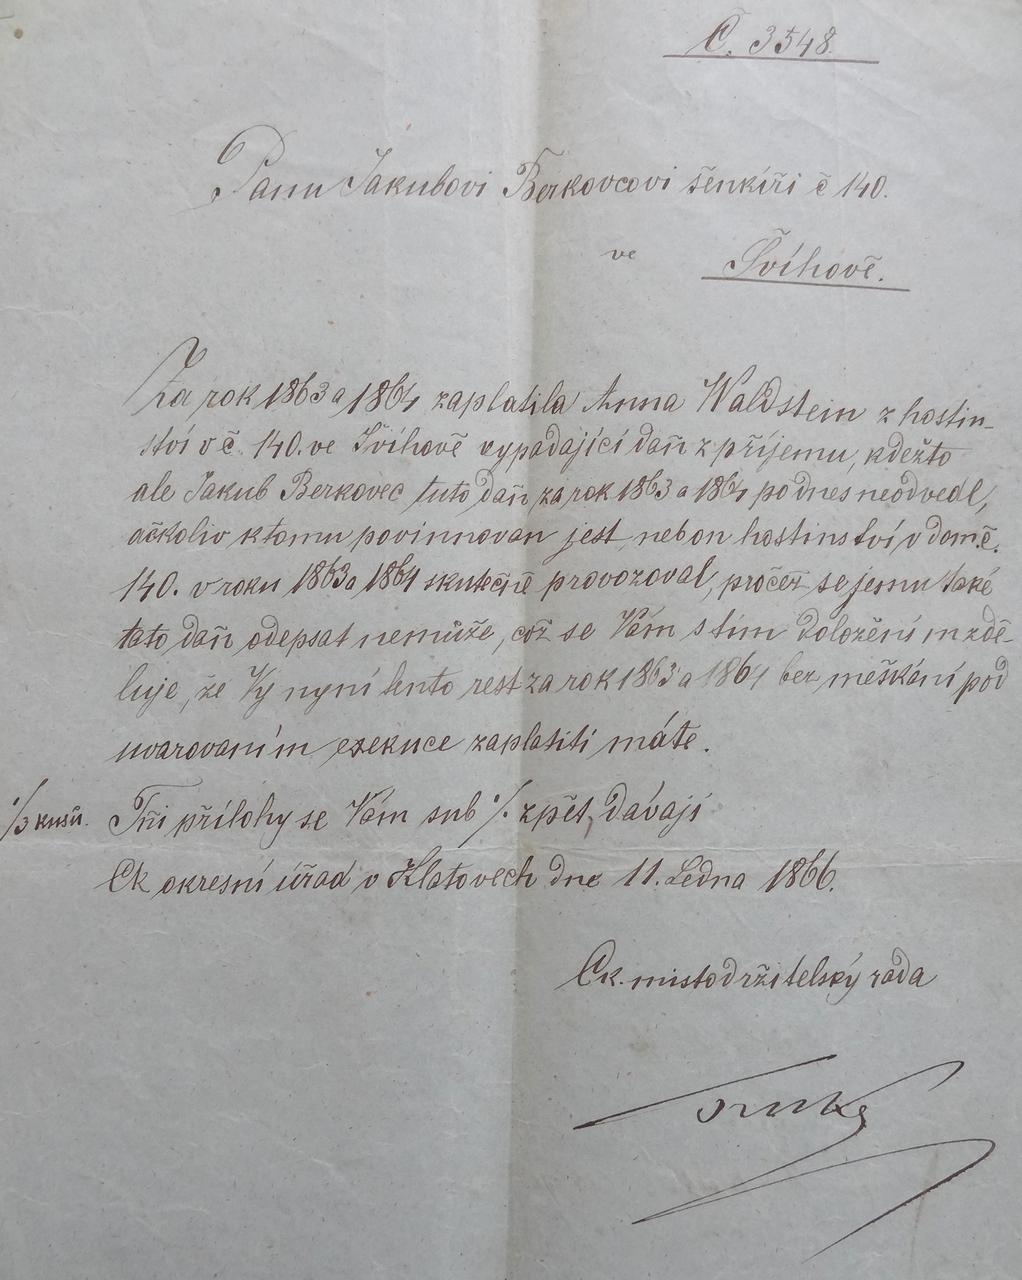 Č. 3548.
Panu Jakubovi Berkovcovi šenkýři č 140.
ve Švihově.
Za rok 1863 a 1864 zaplatila Anna Waldstein z hostin-
ství v č. 140. ve Švihově vypadající daň z příjemu, kdežto
ale Jakub Berkovec tuto daň za rok 1863 a 1864 podnes neodvedl,
ačkoliv k tomu povinnován jest, neb on hostinství v dom. č.
140. v roku 1863 a 1864 skutečně provozoval, pročež se jemu také
tato daň odepsat nemůže, což se Vám s tím doložením zdě-
luje, že Vy nyní tento rest za rok 1863 a 1864 bez meškání pod
uvarovaním exekuce zaplatiti máte.
·/. 3 kusů. Tři přílohy se Vám sub ·/. zpět dávají
Ck okresní úřad v Klatovech dne 11. Ledna 1866.
Ck. mistodržitelský rada